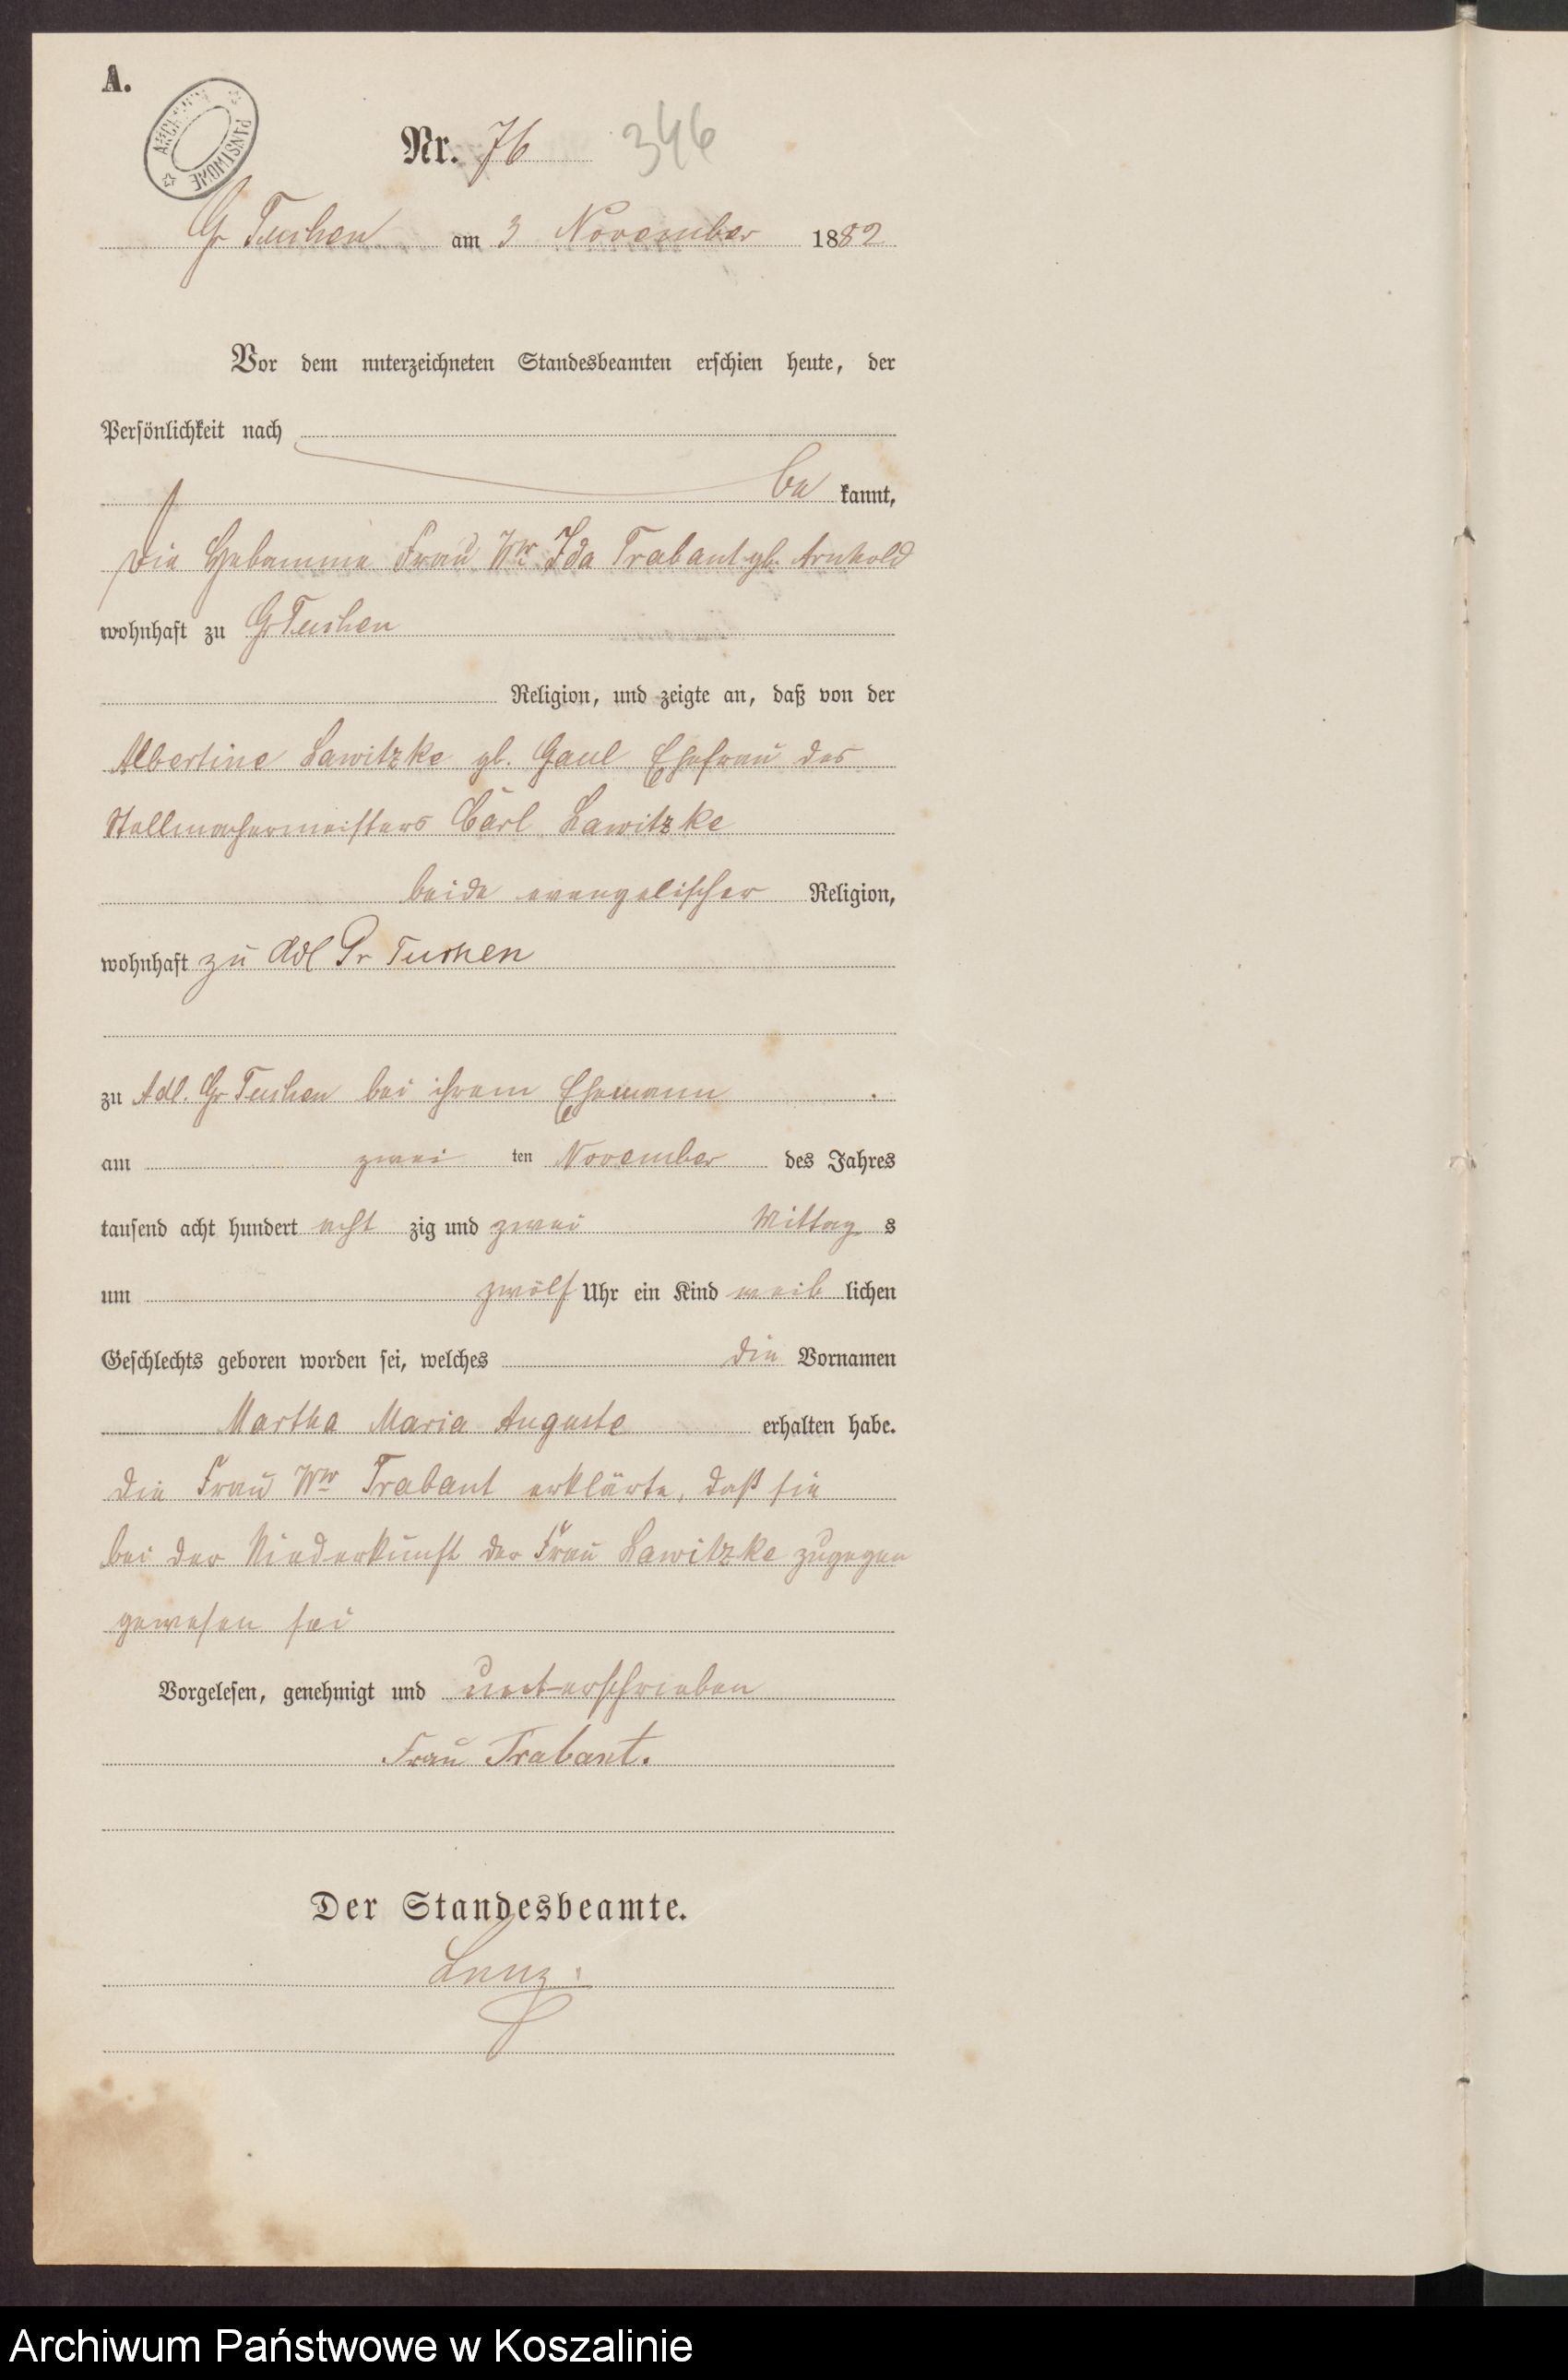 A.
ARCHIWUM PAŃSTWOWE
Nr. 76 346
Gr Tuchen am 3 November 1882
Vor dem unterzeichneten Standesbeamten erschien heute, der
Persönlichkeit nach
be kannt,
die Hebamme Frau Ww Ida Trabant gb. Arnhold
wohnhaft zu Gr Tuchen
Religion, und zeigte an, daß von der
Albertine Lawitzke gb. Gaul Ehefrau des
Stellmachermeisters Carl Lawitzke
beide evangelischer Religion,
wohnhaft zu Adl Gr Tuchen
zu Adl. Gr Tuchen bei ihrem Ehemann
am zwei ten November des Jahres
tausend acht hundert acht zig und zwei Mittag s
um zwölf Uhr ein Kind weib lichen
Geschlechts geboren worden sei, welches die Vornamen
Martha Maria Auguste erhalten habe.
die Frau Ww Trabant erklärte, daß sie
bei der Niederkunft der Frau Lawitzke zugegen
gewesen sei
Vorgelesen, genehmigt und unterschrieben
Frau Trabant.
Der Standesbeamte.
Archiwum Państwowe w Koszalinie